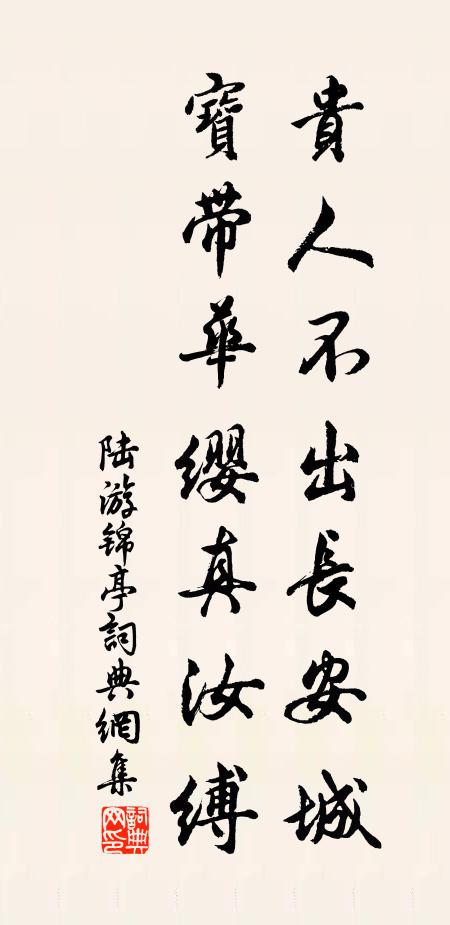 貴人不出長安城
寶帶華纓真汝縛
陆游锦亭詞典網集
詞典網印